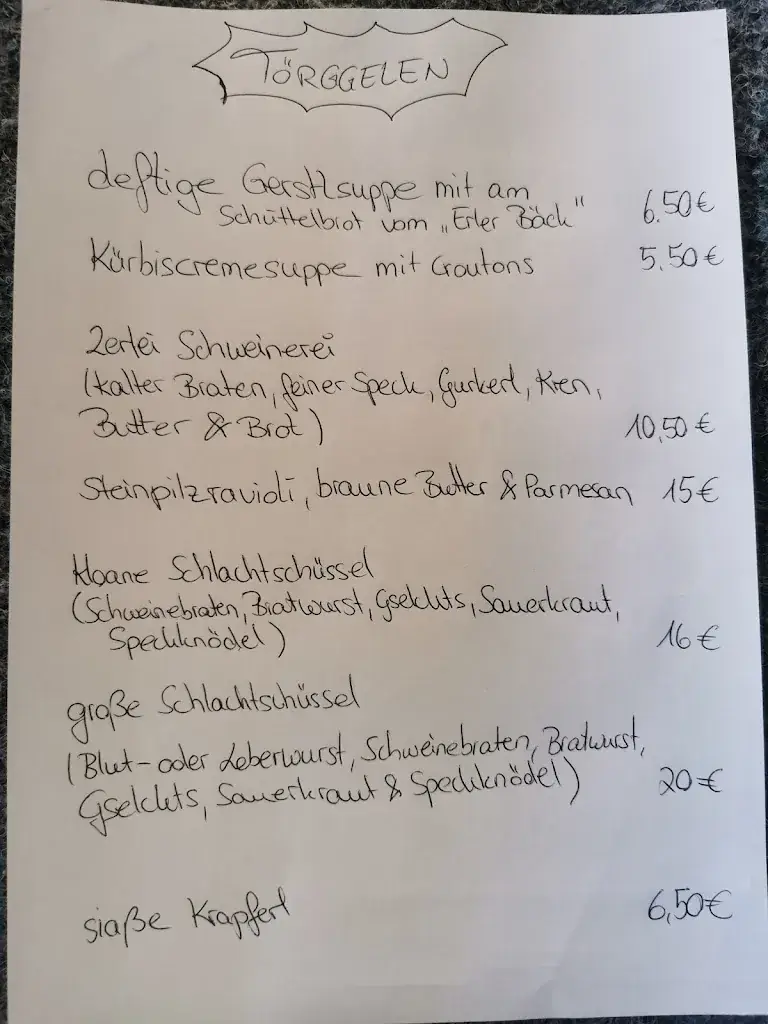 TÖRGGELEN
deftige Gerstlsuppe mit am
Schüttelbrot vom „Erler Bäck" 6.50€
Kürbiscremesuppe mit Croutons 5.50€
2erlei Schweinerei
(kalter Braten, feiner Speck, Gurkerl, Kren,
Butter & Brot) 10,50€
Steinpilzravioli, braune Butter & Parmesan 15€
kloane Schlachtschüssel
(Schweinebraten, Bratwurst, Gselchts, Sauerkraut,
Speckknödel) 16€
große Schlachtschüssel
(Blut- oder Leberwurst, Schweinebraten, Bratwurst,
Gselchts, Sauerkraut & Speckknödel) 20€
siaße Krapferl 6,50€